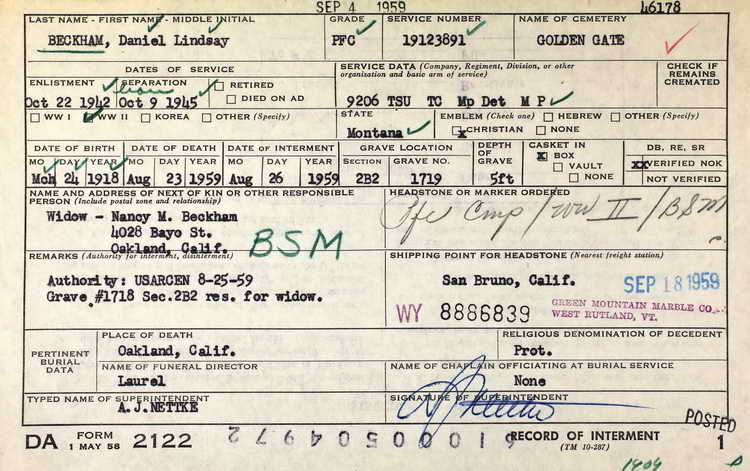 SEP 4 1959
46178
LAST NAME - FIRST NAME - MIDDLE INITIAL
GRADE
SERVICE NUMBER
NAME OF CEMETERY
BECKHAM, Daniel Lindsay
PFC
19123891
GOLDEN GATE
DATES OF SERVICE
SERVICE DATA (Company, Regiment, Division, or other organization and basic arm of service)
CHECK IF REMAINS CREMATED
ENLISTMENT
SEPARATION
RETIRED
DIED ON AD
Oct 22 1942
Oct 9 1945
9206 TSU TC Mp Det M P
WW I
WW II
KOREA
OTHER (Specify)
STATE
Montana
EMBLEM (Check one)
HEBREW
OTHER (Specify)
x CHRISTIAN
NONE
DATE OF BIRTH
DATE OF DEATH
DATE OF INTERMENT
GRAVE LOCATION
DEPTH OF GRAVE
CASKET IN
DB, RE, SR
MO DAY YEAR
MO DAY YEAR
MO DAY YEAR
SECTION
GRAVE NO.
x BOX
VAULT
NONE
xx VERIFIED NOK
NOT VERIFIED
Mch 24 1918
Aug 23 1959
Aug 26 1959
2B2
1719
5ft
NAME AND ADDRESS OF NEXT OF KIN OR OTHER RESPONSIBLE
PERSON (Include postal zone and relationship)
HEADSTONE OR MARKER ORDERED
Widow - Nancy M. Beckham
4028 Bayo St.
Oakland, Calif.
BSM
Pfc Cmp / WW II / BSM
REMARKS (Authority for interment, disinterment)
SHIPPING POINT FOR HEADSTONE (Nearest freight station)
Authority: USARCEN 8-25-59
Grave #1718 Sec.2B2 res. for widow.
San Bruno, Calif.
SEP 18 1959
WY 8886839
GREEN MOUNTAIN MARBLE CO.
WEST RUTLAND, VT.
PERTINENT BURIAL DATA
PLACE OF DEATH
RELIGIOUS DENOMINATION OF DECEDENT
Oakland, Calif.
Prot.
NAME OF FUNERAL DIRECTOR
NAME OF CHAPLAIN OFFICIATING AT BURIAL SERVICE
Laurel
None
TYPED NAME OF SUPERINTENDENT
SIGNATURE OF SUPERINTENDENT
A.J.NETTKE
POSTED
DA FORM 1 MAY 58 2122
RECORD OF INTERMENT
(TM 10-287)
1
1909